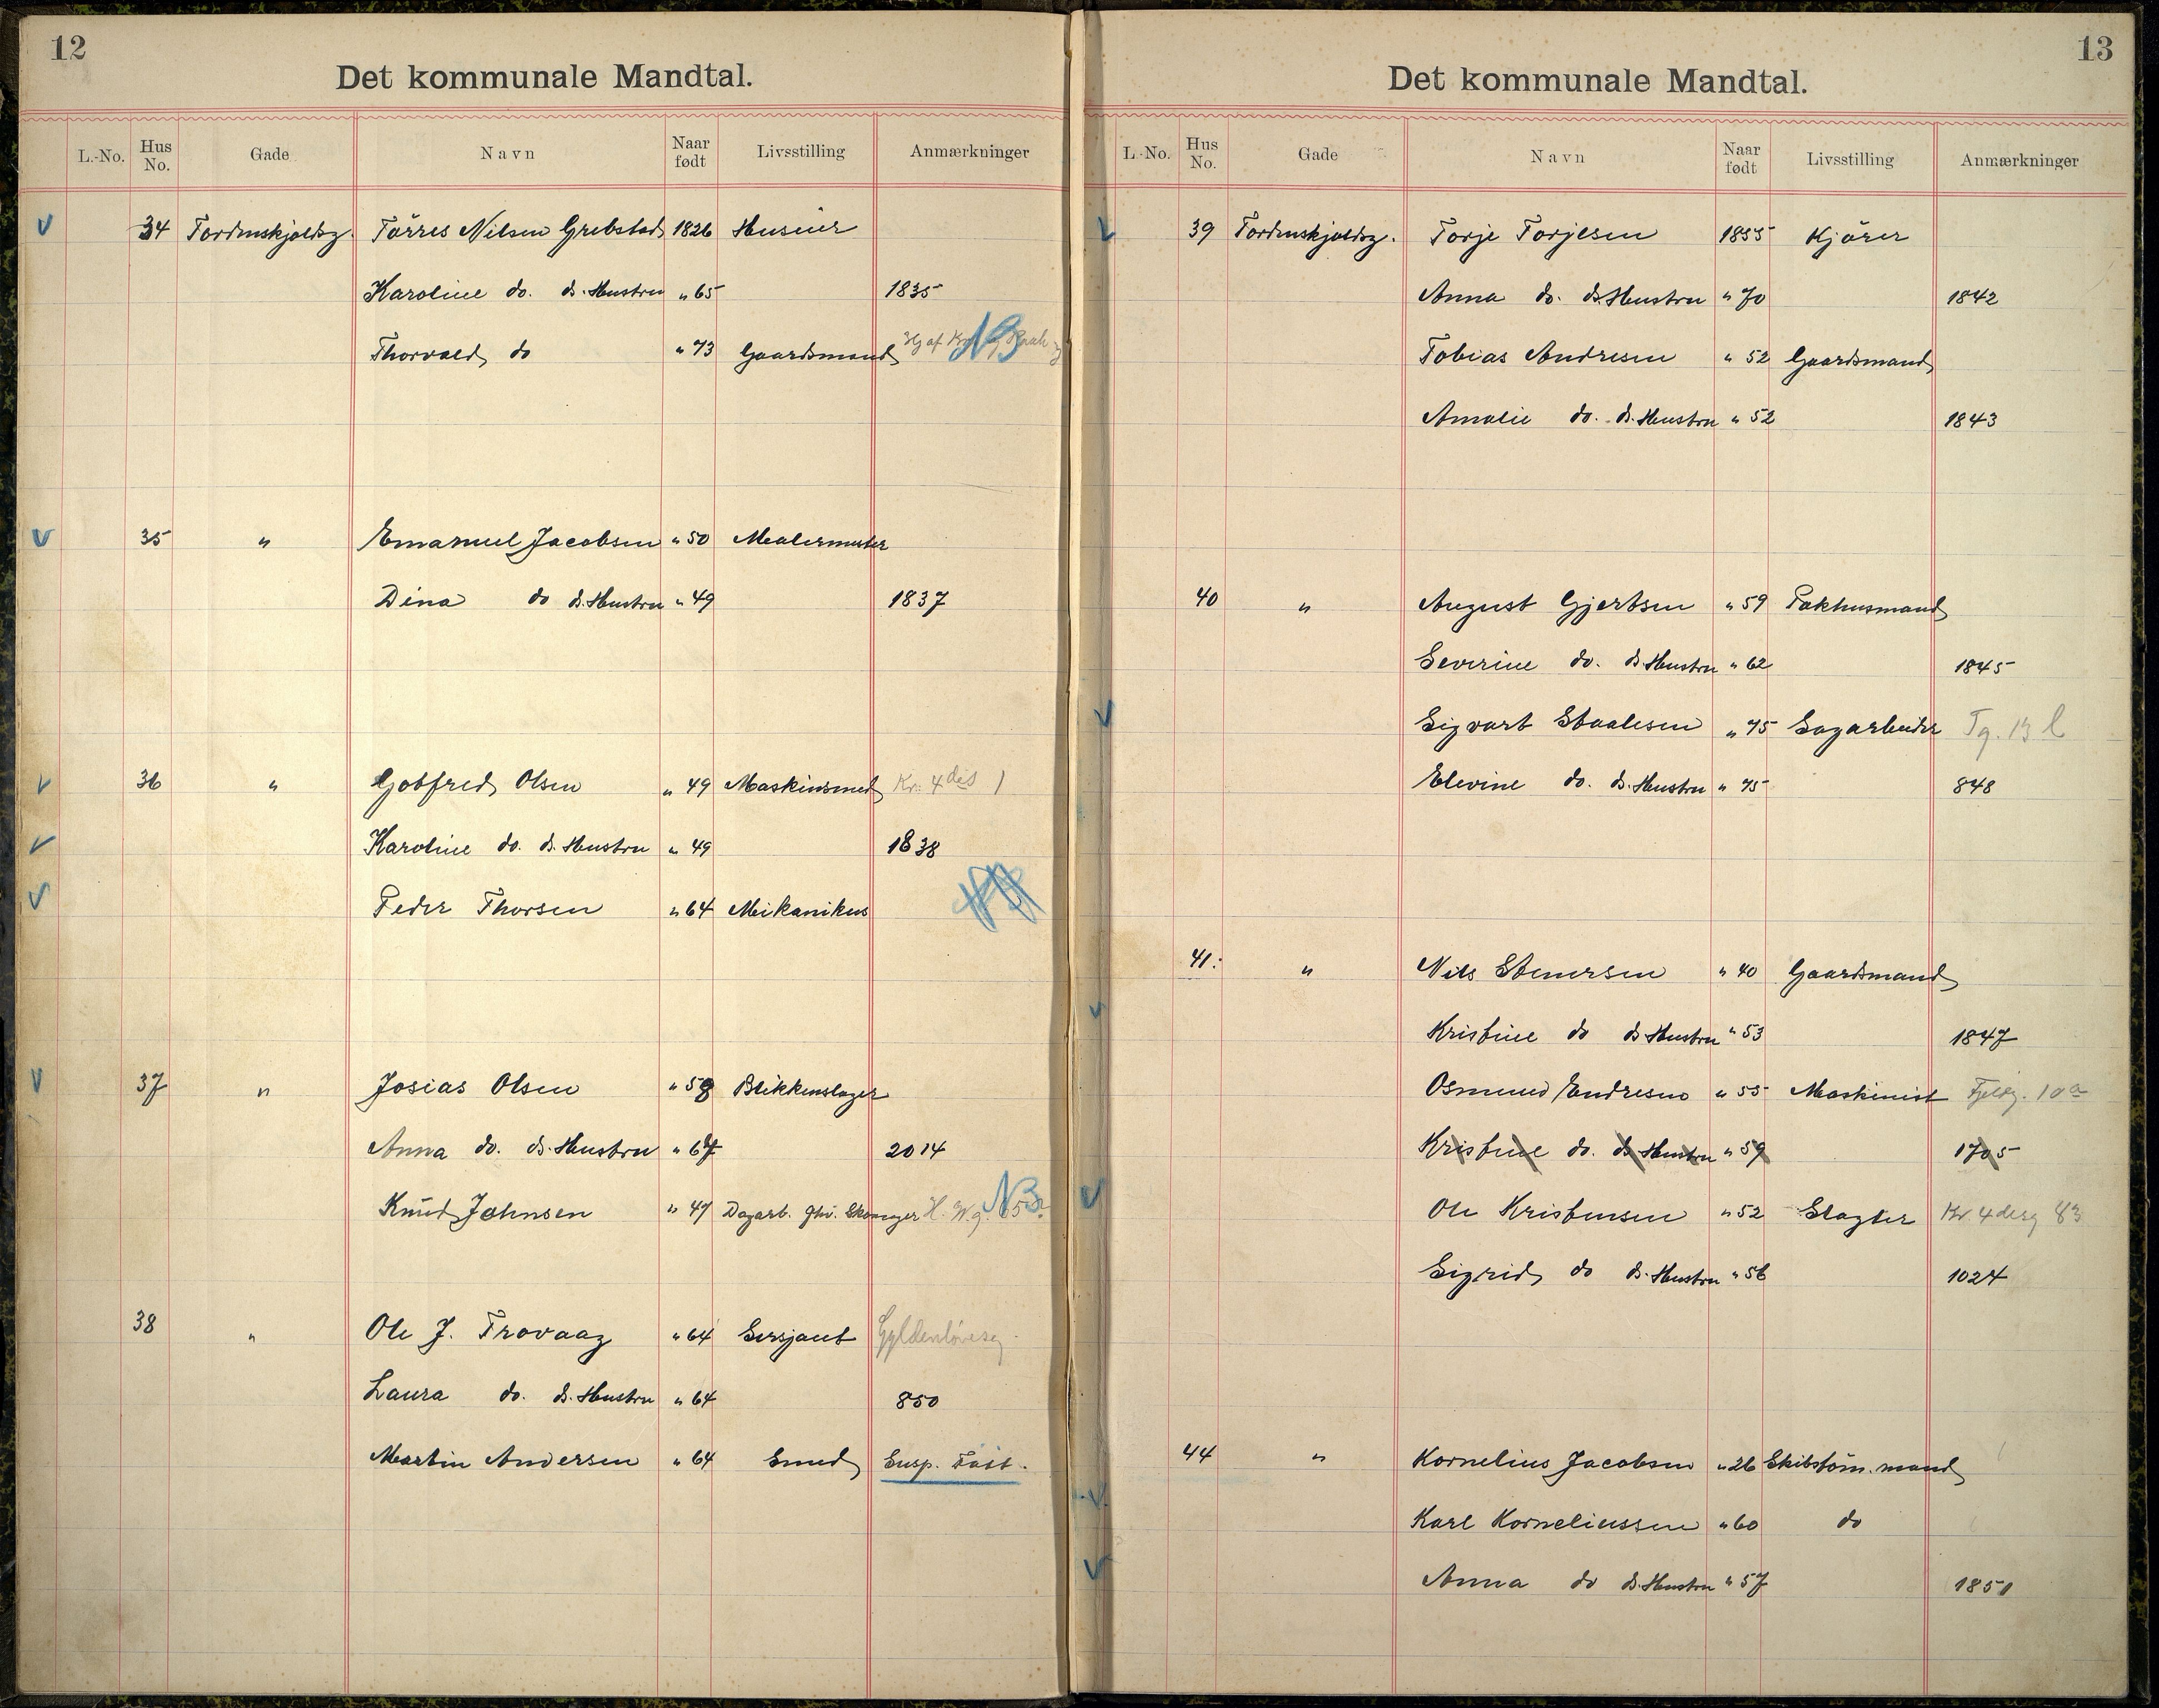 12
Det kommunale Mandtal.
L.-No. Hus No. Gade Navn Naar født Livsstilling Anmærkninger
34 Tordenskjoldsg. Törres Nilsen Grebstad 1826 Huseier
Karoline do. ds. Hustru " 65 1835
Thorvald do " 73 Gaardsmand NB
35 " Emanuel Jacobsen " 50 Malermester
Dina do ds. Hustru " 49 1837
36 " Gotfred Olsen " 49 Maskinsmed Kr. 4des 1
Karoline do. ds. Hustru " 49 1838
Peder Thorsen " 64 Mekanikus
37 " Josias Olsen " 58 Blikkenslager
Anna do. ds. Hustru " 67 2014
Knud Johnsen " 47 Dagarb. NB
38 " Ole J. Trovaag " 64 Sersjant Gyldenløvesg.
Laura do. ds. Hustru " 64 850
Martin Andersen " 64 Smed Susp. Fatt.
13
Det kommunale Mandtal.
L.-No. Hus No. Gade Navn Naar født Livsstilling Anmærkninger
39 Tordenskjoldsg. Torje Torjesen 1855 Kjörer
Anna do. ds. Hustru " 70 1842
Tobias Andresen " 52 Gaardsmand
Amalie do. ds. Hustru " 52 1843
40 " August Gjertsen " 59 Pakhusmand
Severine do. ds. Hustru " 62 1845
Sigvart Staalesen " 75 Sagarbeider Tg. 13 b
Elevine do. ds. Hustru " 75 848
41. " Nils Stenersen " 40 Gaardsmand
Kristine do ds Hustru " 53 1847
Osmund Endresen " 55 Maskinist Fjeldg. 10a
Kristine do. ds Hustru " 59 1705
Ole Kristensen " 52 Slagter Kr 4desg 83
Sigrid do ds. Hustru " 56 1024
44 " Kornelius Jacobsen " 26 Skibstöm.mand
Karl Korneliussen " 60 do
Anna do ds. Hustru " 57 1851